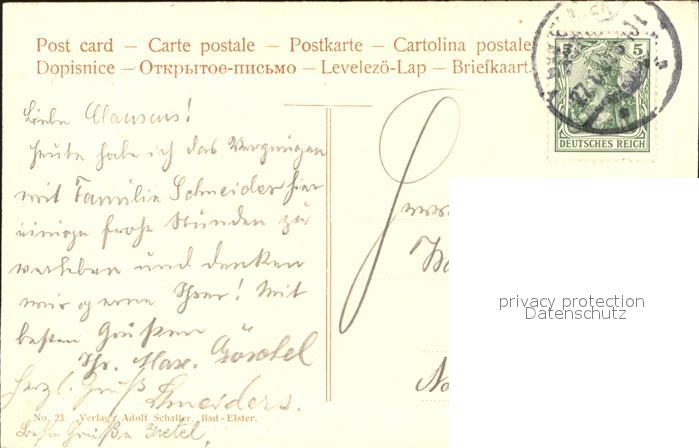 Post card – Carte postale – Postkarte – Cartolina postale
Dopisnice – Открытое-письмо – Levelező-Lap – Briefkaart.
5 5
DEUTSCHES REICH
Liebe Clausens!
Heute habe ich das Vergnügen
mit Familie Schneider hier
einige frohe Stunden zu
verleben und denken
wir gerne Ihrer! Mit
besten Grüßen
Ihr Max
Herzl. Gruß Schneiders.
No. 23. Verlag: Adolf Schaller, Bad-Elster.
Beste Grüße Gretel.
privacy protection
Datenschutz